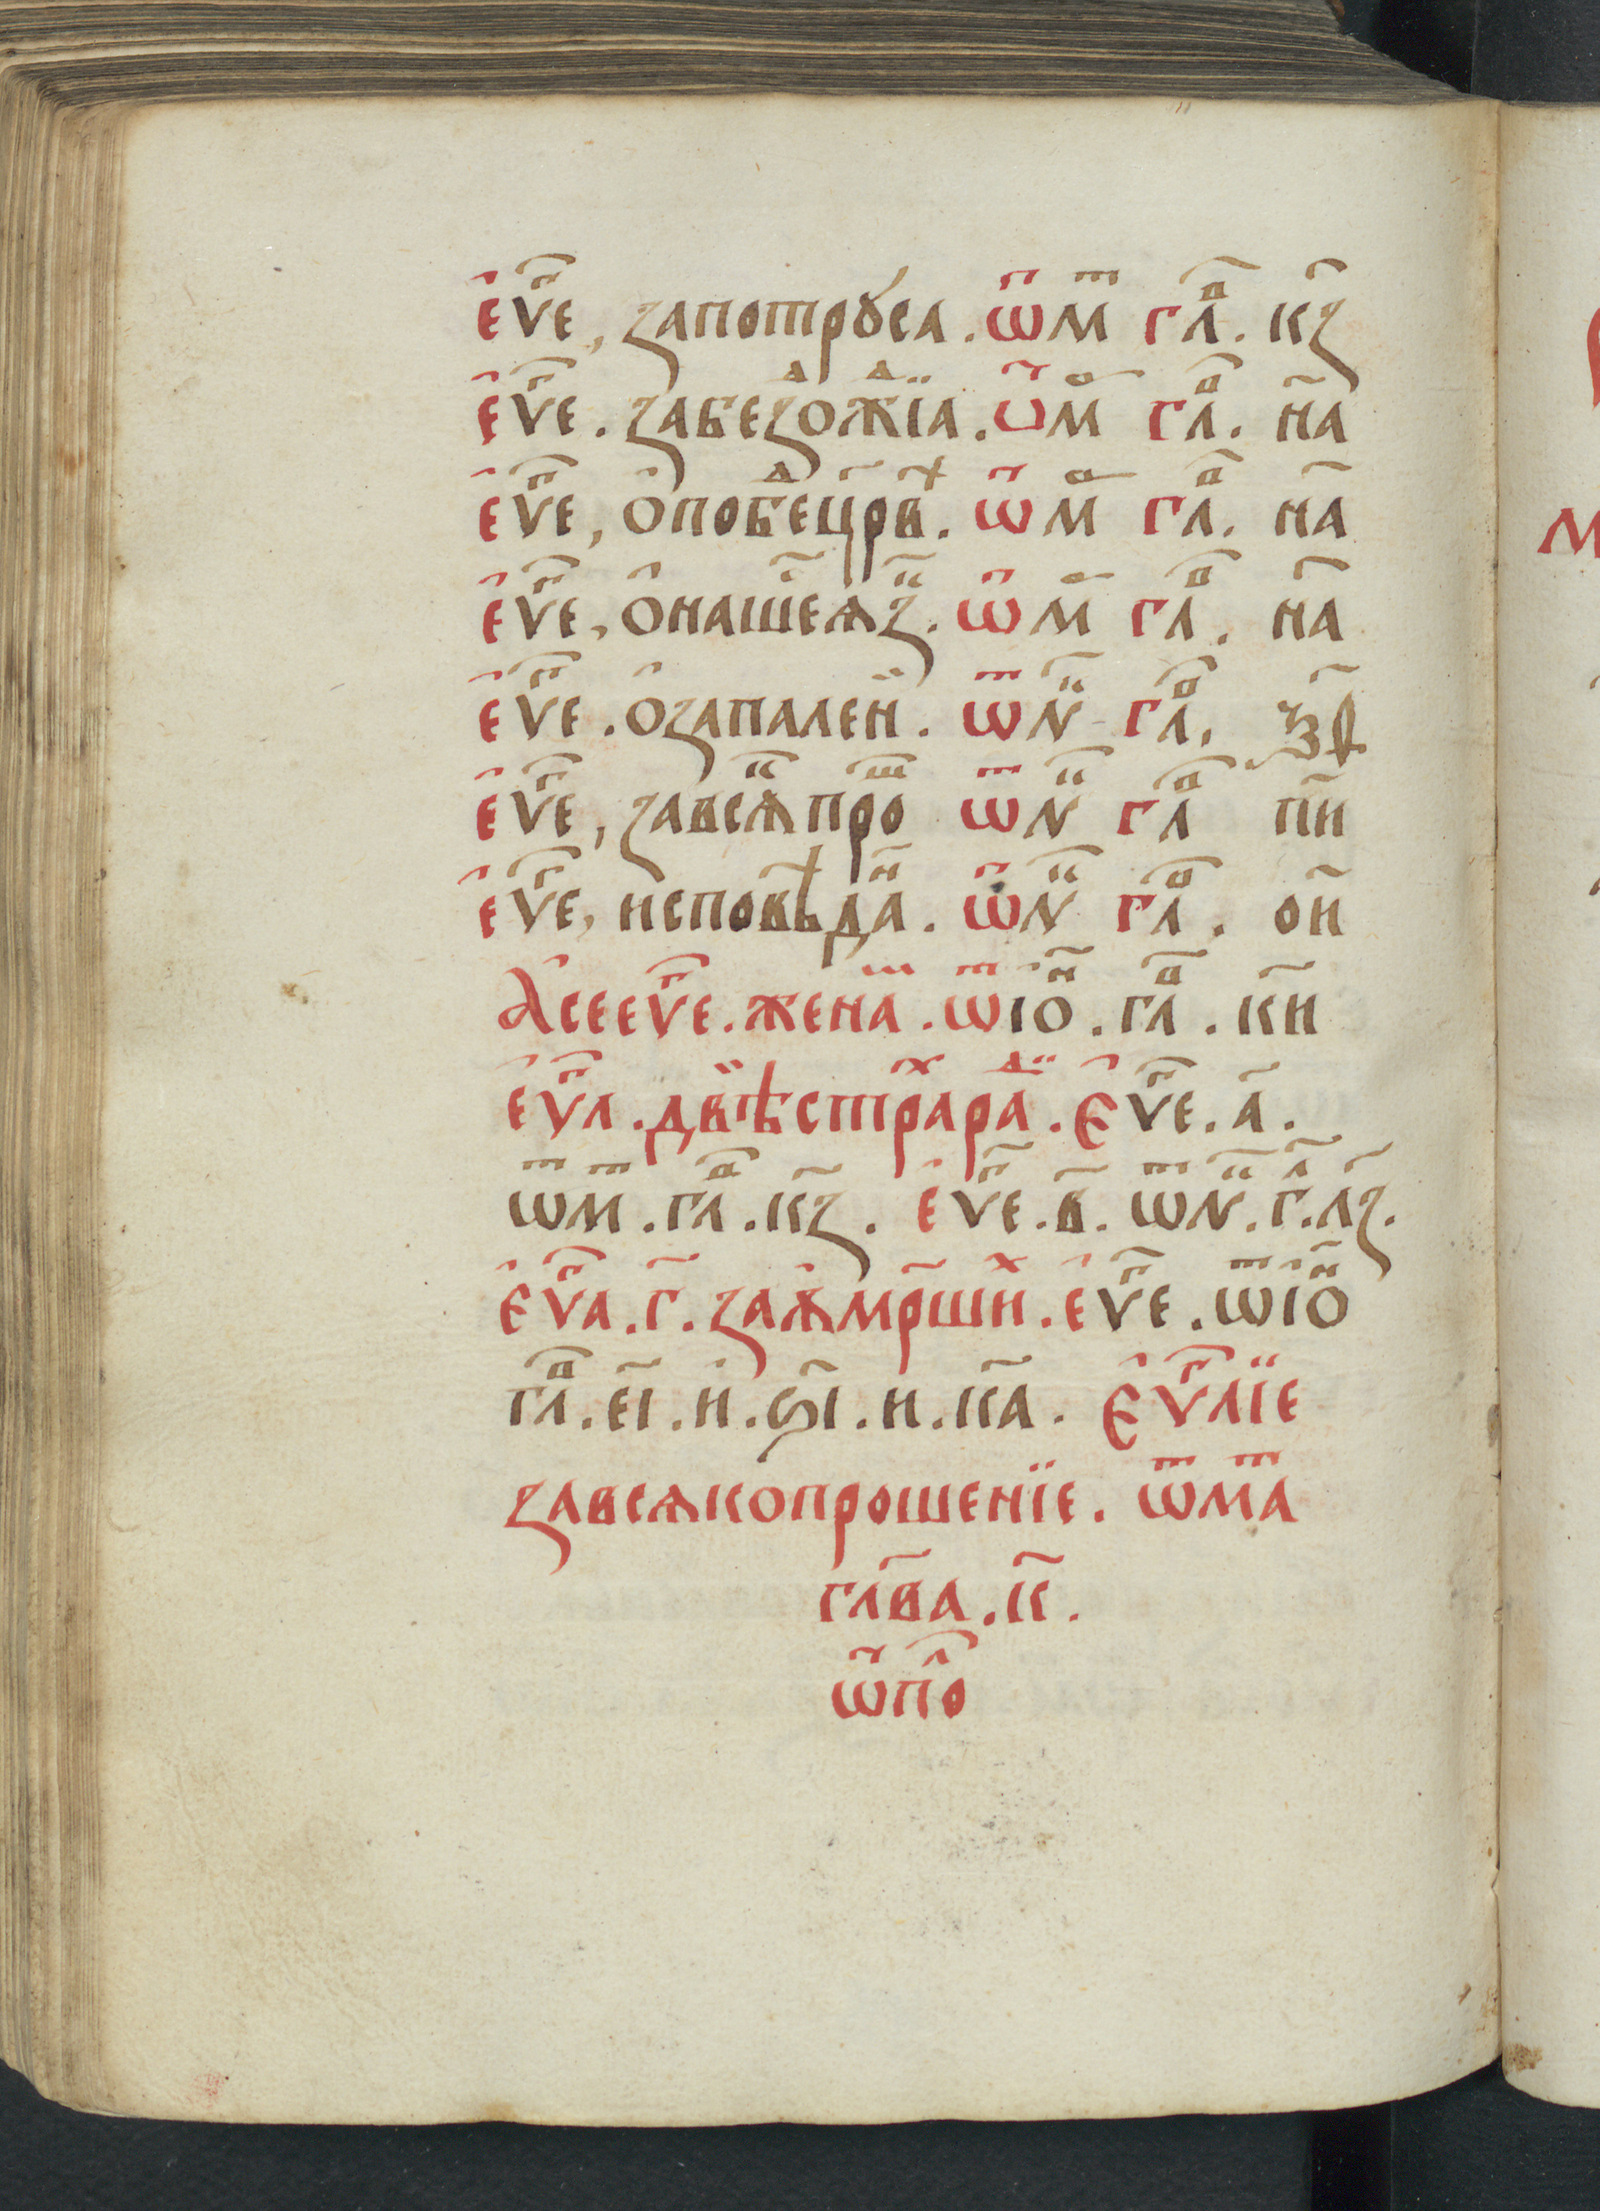 є҆ѵ҃ⷢ҇е, запотрꙋса. ѿм҃ⷮ гл҃ⷡ. к҃з
є҆ѵ҃ⷢ҇е. забеⷥ҇дожⷣїа. ѿмⷴ гл҃ⷡ. н҃а
є҆ѵ҃ⷢ҇е, ѻ҆побⷣецрв҃. ѿмⷴ гл҃ⷡ. н҃а
є҆ѵ҃ⷢ҇е, ѻ҆нашеѧз҃. ѿмⷴ гл҃ⷡ. н҃а
є҆ѵ҃ⷢ҇е. ѻ҆запален̈. ѿн҃ гл҃ⷡ.
є҆ѵ҃ⷢ҇е, завсѧ҃проⷲ ѿн҃ гл҃ⷡ п҃и
є҆ѵ҃ⷢ҇е, исповѣдаⷩ. ѿн҃ гл҃ⷡ. ѻ҃и
А҆сееѵⷢ҇е. женаⷨ. ѿіѡⷩ. гл҃ⷡ. к҃и
є҆ѵⷢ҇л. двѣстрⷯараⷣ. Є҆ѵⷢ҇е. а҃.
ѿмⷮ. гл҃ⷡ. к҃з. є҆ѵⷢ҇е. в҃. ѿн҃. гⷧ. л҃з.
Є҆ѵⷢ҇л. г҃. заѧ҆мр҃шиⷯ. є҆ѵⷢ҇е. ѿіѻⷩ
гл҃ⷡ. е҃і. и҆. ѕ҃і. и. к҃а. Є҆ѵⷢ҇лїе
завсѧкопрошенїе. ѿмⷮа
глв҃а. к҃.
ѿпоⷧ